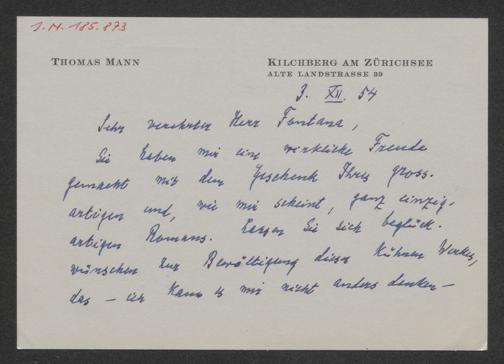 J.N. 185.873
THOMAS MANN
KILCHBERG AM ZÜRICHSEE
ALTE LANDSTRASSE 39
3. XII. 54
Sehr verehrter Herr Fontana,
Sie haben mir eine wirkliche Freude
gemacht mit dem Geschenk Ihres gross-
artigen und, wie mir scheint, ganz einzig-
artigen Romans. Lassen Sie sich beglück-
wünschen zur Bewältigung dieses kühnen Werkes,
das – ich kann es mir nicht anders denken –